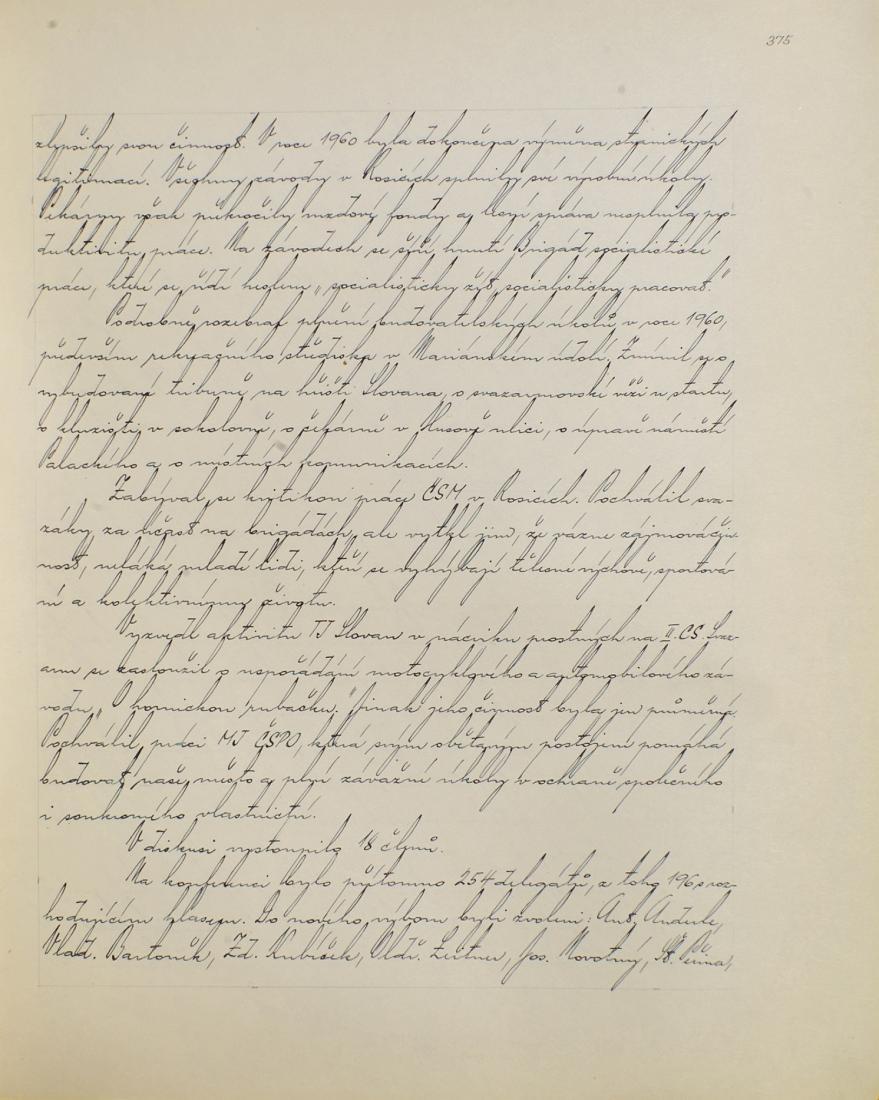 375
zlepšily svou činnost. V roce 1960 byla dokončena výměna stranických
legitimací. Všechny závody v Rosicích splnily své výrobní úkoly.
Pekárny však překročily mzdové fondy a lesní správa nesplnila pro-
duktivitu práce. Na závodech se šíří hnutí Brigád socialistické
práce, které se řídí heslem „socialisticky žít, socialisticky pracovat."
Podrobně rozebral plnění budovatelských úkolů v roce 1960,
především rekreačního střediska v Mariánském údolí. Zmínil se o
vybudované tribuně na hřišti Slovana, o svazarmovské věži u startu,
o kluzišti v sokolovně, o čekárně v Husově ulici, o úpravě náměstí
Palackého a o místních komunikacích.
Zabýval se kritikou práce ČSM v Rosicích. Pochválil sva-
záky za účast na brigádách, ale vytkl jim, že vázne zájmová čin-
nost, neláká mladé lidi, kteří se vyhýbají tělesné výchově, sportová-
ní a kolektivnímu životu.
Vyzvedl aktivitu TJ Slovan v nácviku prostných na II. CS. Svaz-
arm se zasloužil o uspořádání motocyklového a automobilového zá-
vodu „O hornickou rubačku." Jinak jeho činnost byla jen průměrná.
Pochválil práci MJ ČSPO, která svým obětavým postojem pomáhá
budovat naše město a plní závažné úkoly v ochraně společného
i soukromého vlastnictví.
V diskusi vystoupilo 18 členů.
Na konferenci bylo přítomno 254 delegátů, z toho 196 s roz-
hodujícím hlasem. Do nového výboru byli zvoleni: Ant. Anderle,
Vlad. Bartoněk, Zd. Kubíček, Oldř. Leitner, Jos. Novotný, St. Peřina,